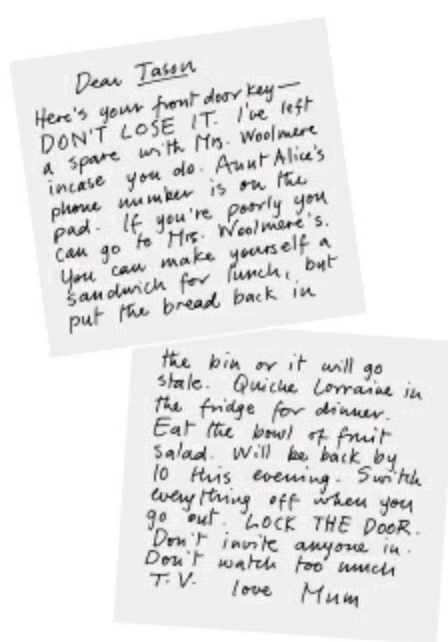 Dear Tason
Here's your front door key—
DON'T LOSE IT. I've left
a spare with Mrs. Woolmere
incase you do. Aunt Alice's
phone number is on the
pad. If you're poorly you
can go to Mrs. Woolmere's.
You can make yourself a
sandwich for lunch, but
put the bread back in
the bin or it will go
stale. Quiche Lorraine in
the fridge for dinner.
Eat the bowl of fruit
salad. Will be back by
10 this evening. Switch
everything off when you
go out. LOCK THE DOOR.
Don't invite anyone in.
Don't watch too much
T.V. love Mum